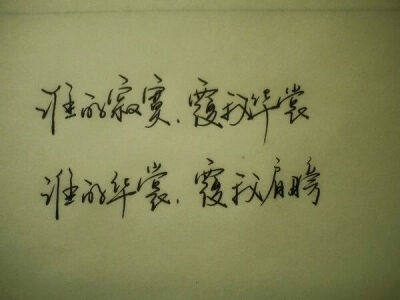 谁的寂寞,覆我华裳
谁的华裳,覆我肩膀